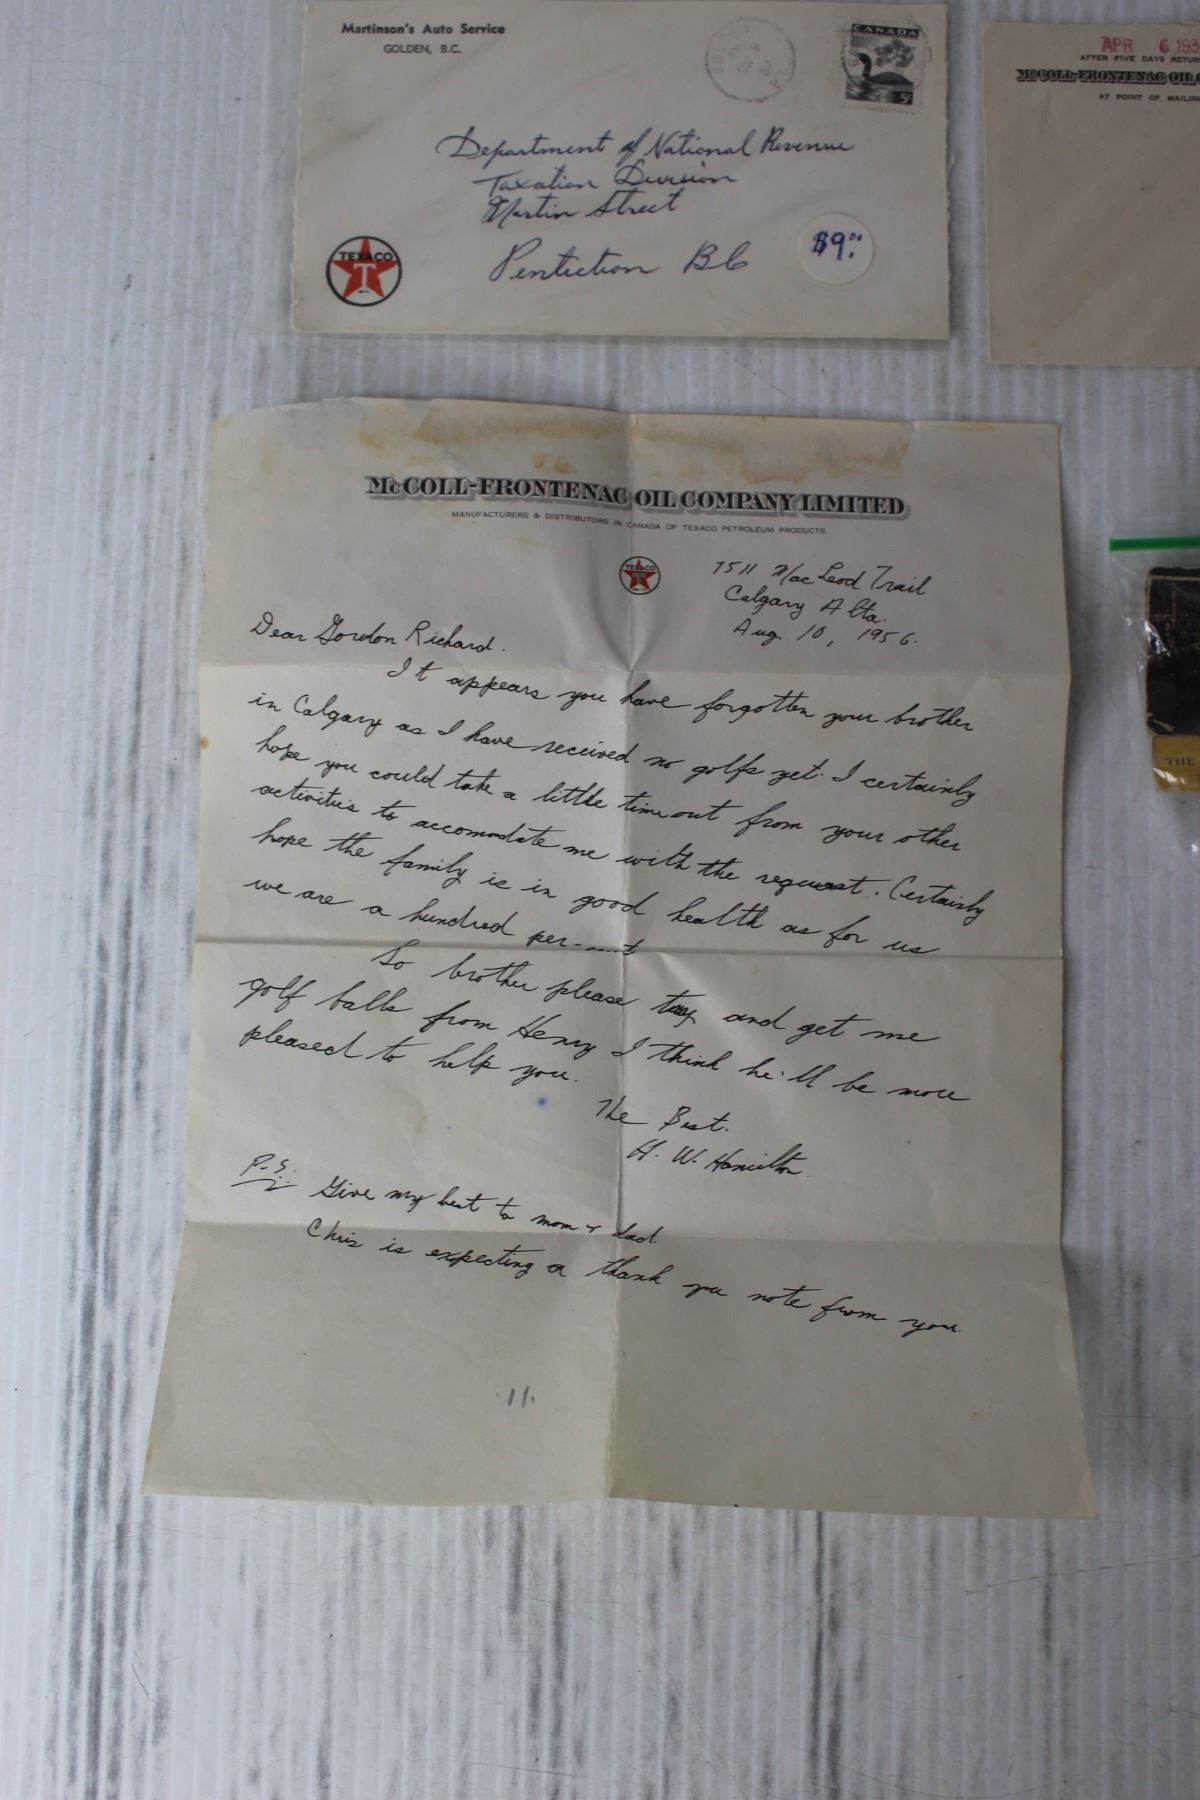 Martinson's Auto Service
GOLDEN, B.C.
CANADA
5¢
Department of National Revenue
Taxation Division
Martin Street
Penticton BC
$9.00
TEXACO
T
APR 6 193
AFTER FIVE DAYS RETUR
McCOLL-FRONTENAC OIL C
AT POINT OF MAILIN
McCOLL-FRONTENAC OIL COMPANY LIMITED
MANUFACTURERS & DISTRIBUTORS IN CANADA OF TEXACO PETROLEUM PRODUCTS
TEXACO
7511 MacLeod Trail
Calgary Alta.
Aug 10, 1956.
Dear Gordon Richard.
It appears you have forgotten your brother
in Calgary as I have received no golfs yet. I certainly
hope you could take a little time out from your other
activities to accomodate me with the request. Certainly
hope the family is in good health as for us
we are a hundred per-cent
So brother please try and get me
golf balls from Henry I think he'll be more
pleased to help you.
The Best.
H. W. Hamilton.
P.S.
Give my best to mom + dad.
Chris is expecting a thank you note from you.
11.
THE